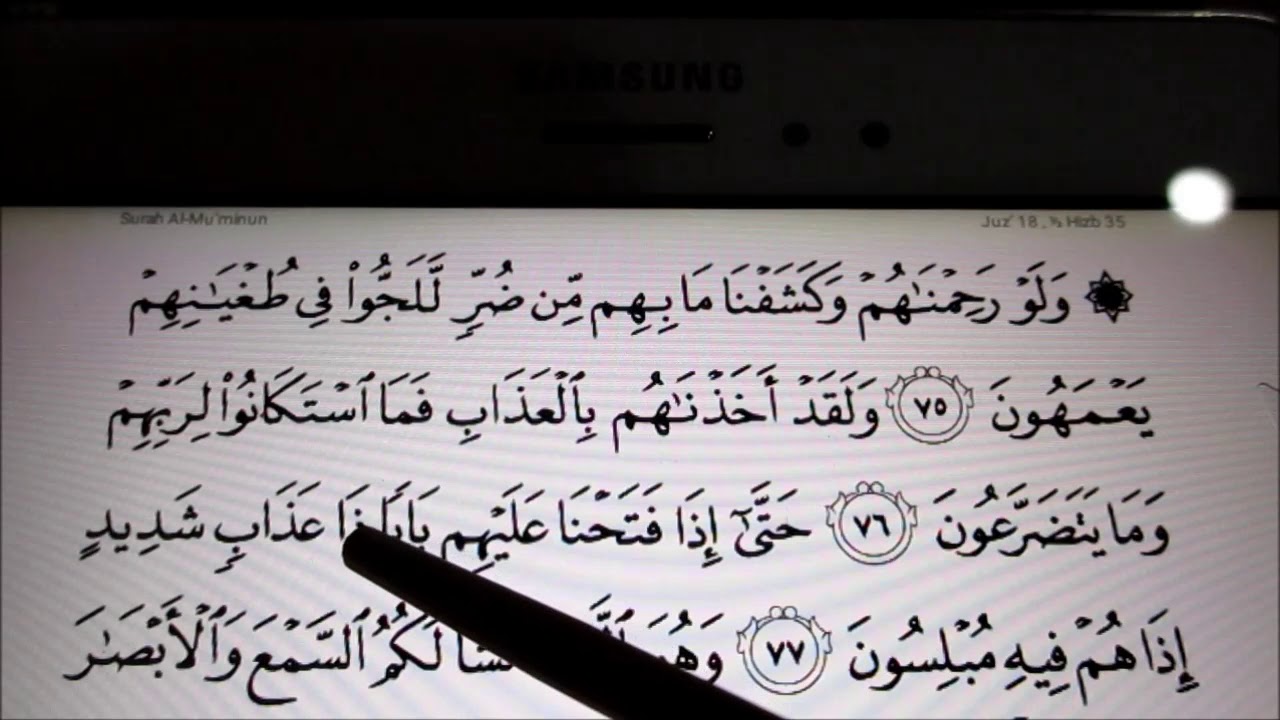 SAMSUNG
Surah Al-Mu'minun Juz' 18 , ½ Hizb 35
۞ وَلَوْ رَحِمْنَـٰهُمْ وَكَشَفْنَا مَا بِهِم مِّن ضُرٍّ لَّلَجُّوا۟ فِى طُغْيَـٰنِهِمْ
يَعْمَهُونَ ٧٥ وَلَقَدْ أَخَذْنَـٰهُم بِٱلْعَذَابِ فَمَا ٱسْتَكَانُوا۟ لِرَبِّهِمْ
وَمَا يَتَضَرَّعُونَ ٧٦ حَتَّىٰٓ إِذَا فَتَحْنَا عَلَيْهِم بَابًا ذَا عَذَابٍ شَدِيدٍ
إِذَا هُمْ فِيهِ مُبْلِسُونَ ٧٧ وَهُوَ لَكُمُ ٱلسَّمْعَ وَٱلْأَبْصَـٰرَ